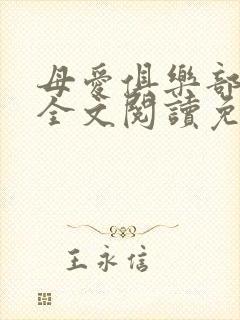 母愛俱樂部
全文閱讀免
王永信